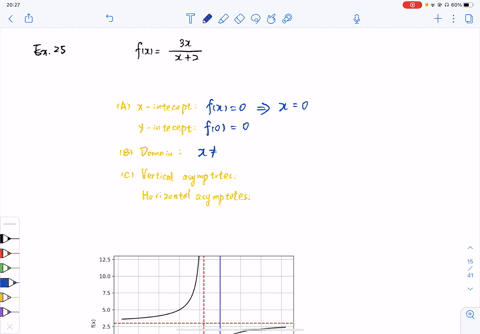 20:27
60%
Ex. 25 f(x) = 3x / x+2
(A) x-intecept: f(x)=0 ⇒ x=0
y-intecept: f(0) = 0
(B) Domain: x≠
(C) Vertical asymptotes:
Horizontal asymptotes:
15
/
41
12.5
10.0
7.5
5.0
2.5
f(x)